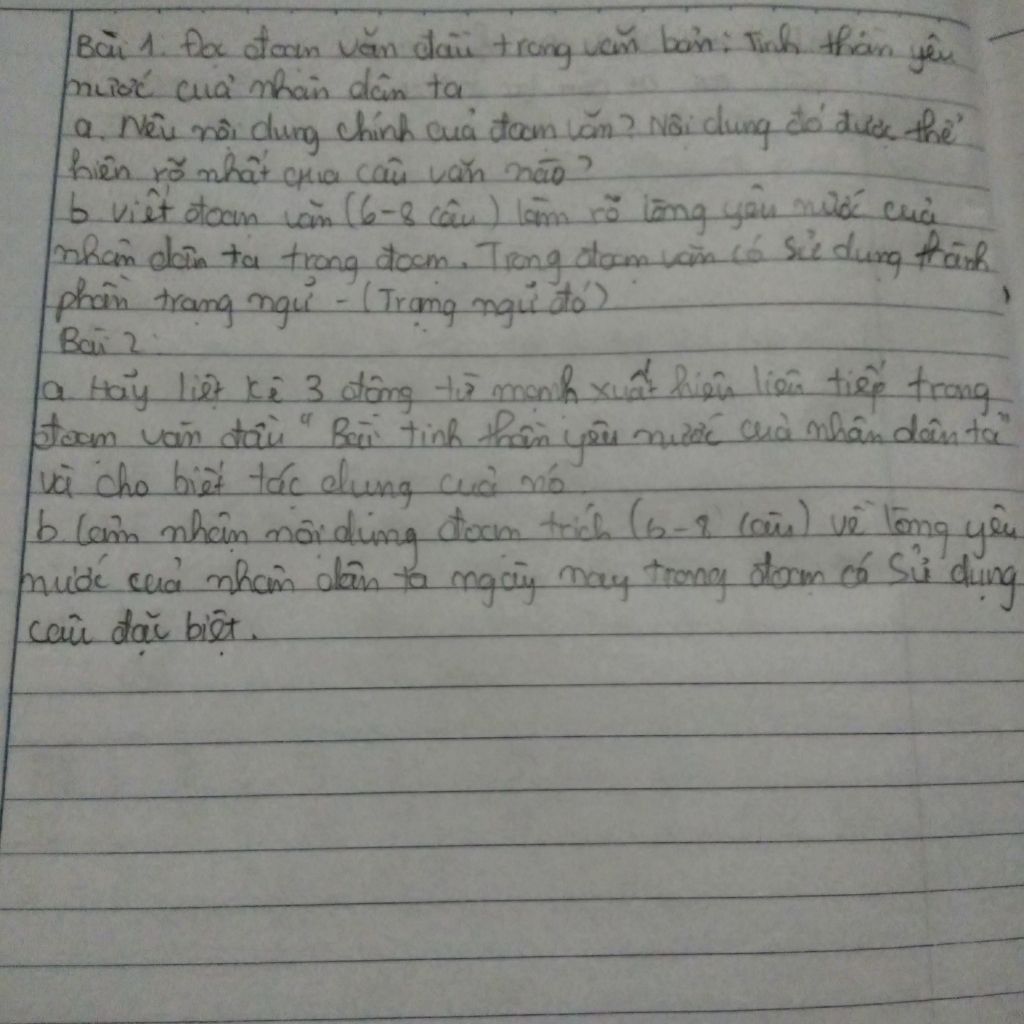 Bài 1. Đọc đoạn văn đầu trong văn bản: Tinh thần yêu
nước của nhân dân ta
a. Nêu nội dung chính của đoạn văn? Nội dung đó được thể
hiện rõ nhất qua câu văn nào?
b viết đoạn văn (6-8 câu) làm rõ lòng yêu nước của
nhân dân ta trong đoạn. Trong đoạn văn có sử dụng thành
phần trạng ngữ - (Trạng ngữ đó)
Bài 2:
a Hãy liệt kê 3 động từ mạnh xuất hiện liên tiếp trong
đoạn văn đầu "Bài tinh thần yêu nước của nhân dân ta"
và cho biết tác dụng của nó
b Cảm nhận nội dung đoạn trích (6-8 câu) về lòng yêu
nước của nhân dân ta ngày nay trong đoạn có sử dụng
câu đặc biệt.